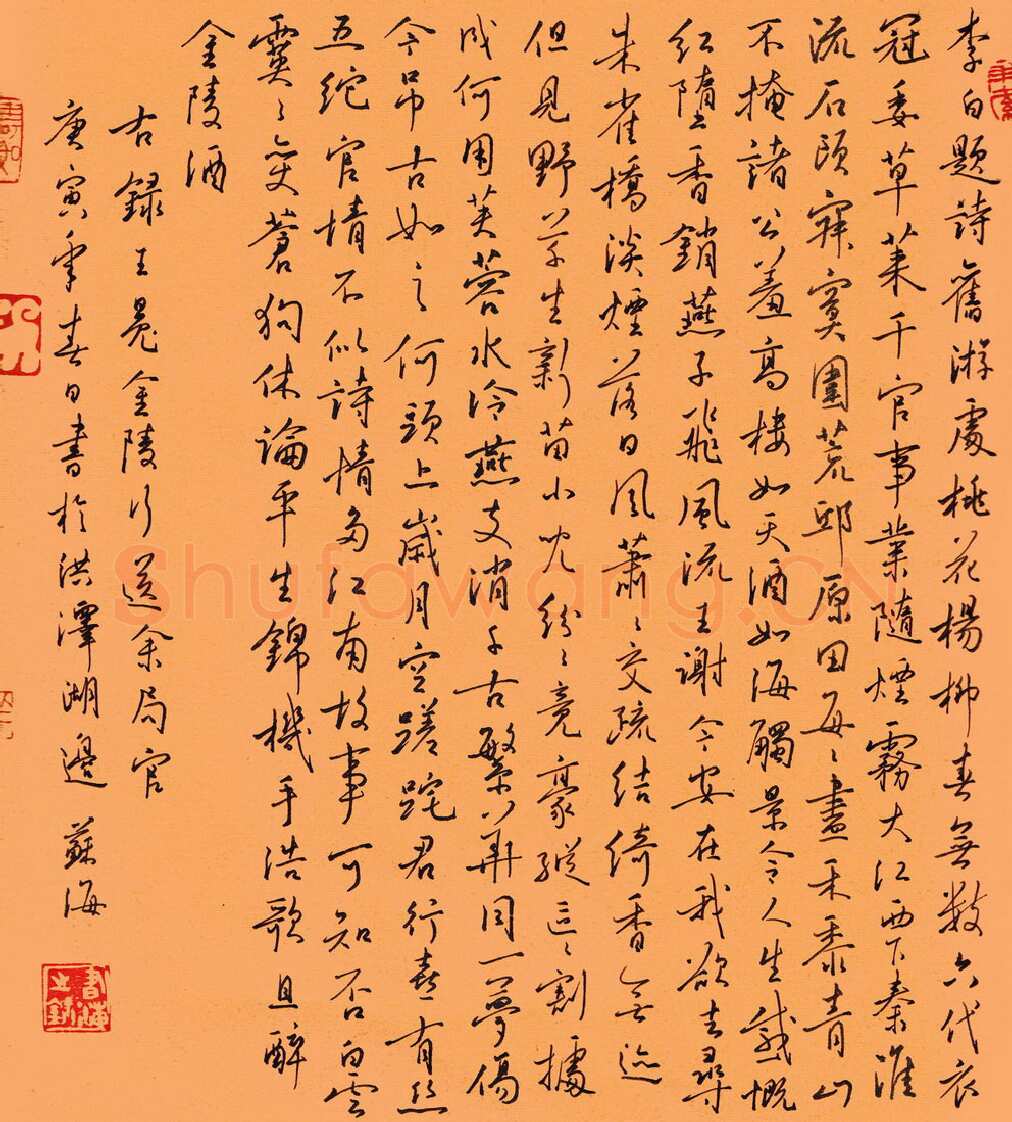 李白題詩舊游處桃花楊柳春無數六代衣
冠委草萊千官事業隨煙霧大江西下秦淮
流石頭寂寞圍荒邱原田每〻盡禾黍青山
不掩諸公羞高樓如天酒如海觸景令人生感慨
紅墮香銷燕子飛風流王謝今安在我欲去尋
朱雀橋淡煙落日風蕭〻交疏結綺香無迹
但見野草生新苗小兒紛〻竞豪縱區〻割據
成何用芙蓉水冷燕支消千古繁華同一夢傷
今吊古如之何頭上歲月空蹉跎君行喜有絲
五紽官情不似詩情多江南故事可知不白雲
冥〻變蒼狗休論平生錦機手浩歌且醉
金陵酒
右録王冕金陵行送余局官
庚寅年春日書於洪澤湖邊 蘇海
Shufawang.CN